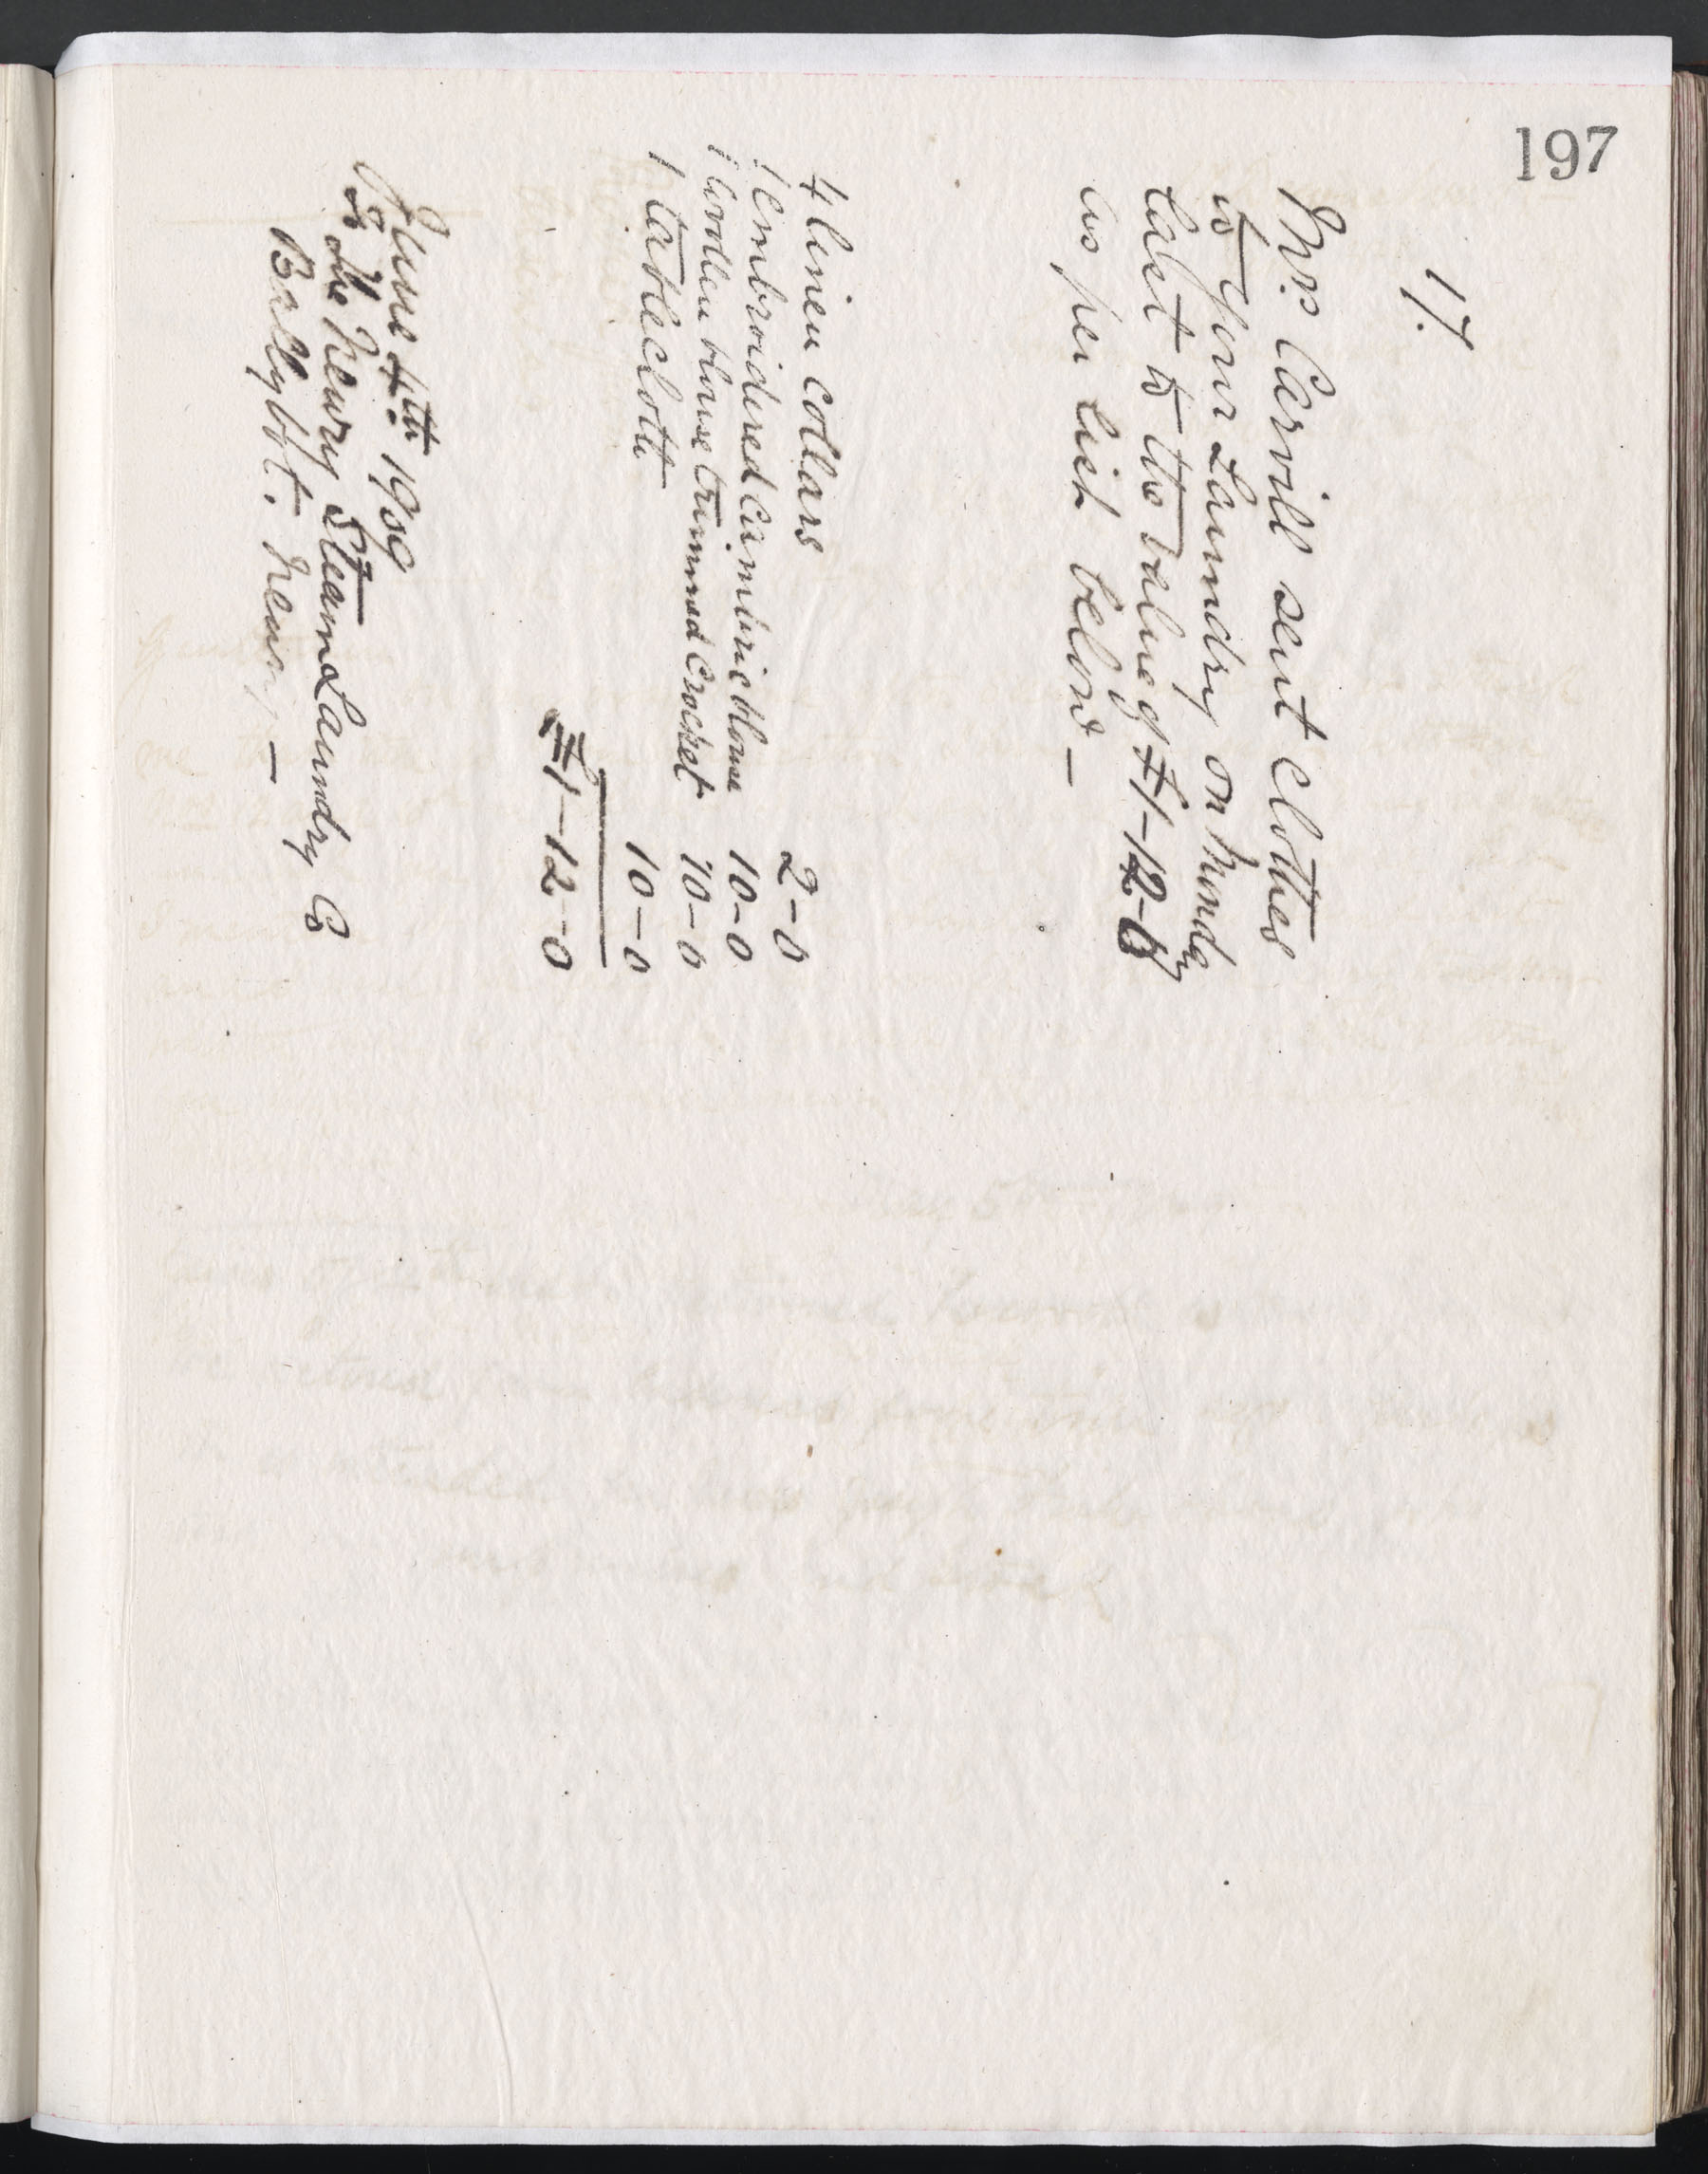 197
17.
Mrs. Carvill sent clothes
to your Laundry on Monday
last to the value of £1-12-0
as per list below —
4 linen collars 2-0
1 embroidered cambric blouse 10-0
1 woollen blouse trimmed Crocket 10-0
1 tablecloth 10-0
£1-12-0
June 4th 1909
To The Newry Steam Laundry Co
Ballybot. Newry —